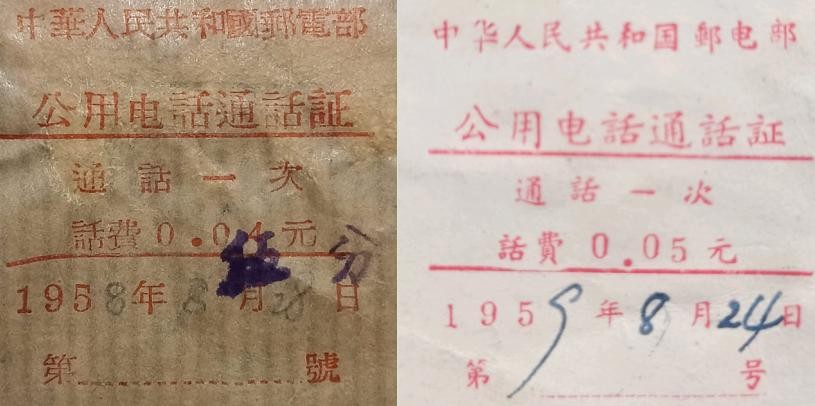 中華人民共和國郵電部
公用电話通話証
通話一次
話費0.04元
伍分
1958年8月28日
第號
中华人民共和国郵电部
公用电話通話証
通話一次
話費0.05元
1959年8月24日
第号